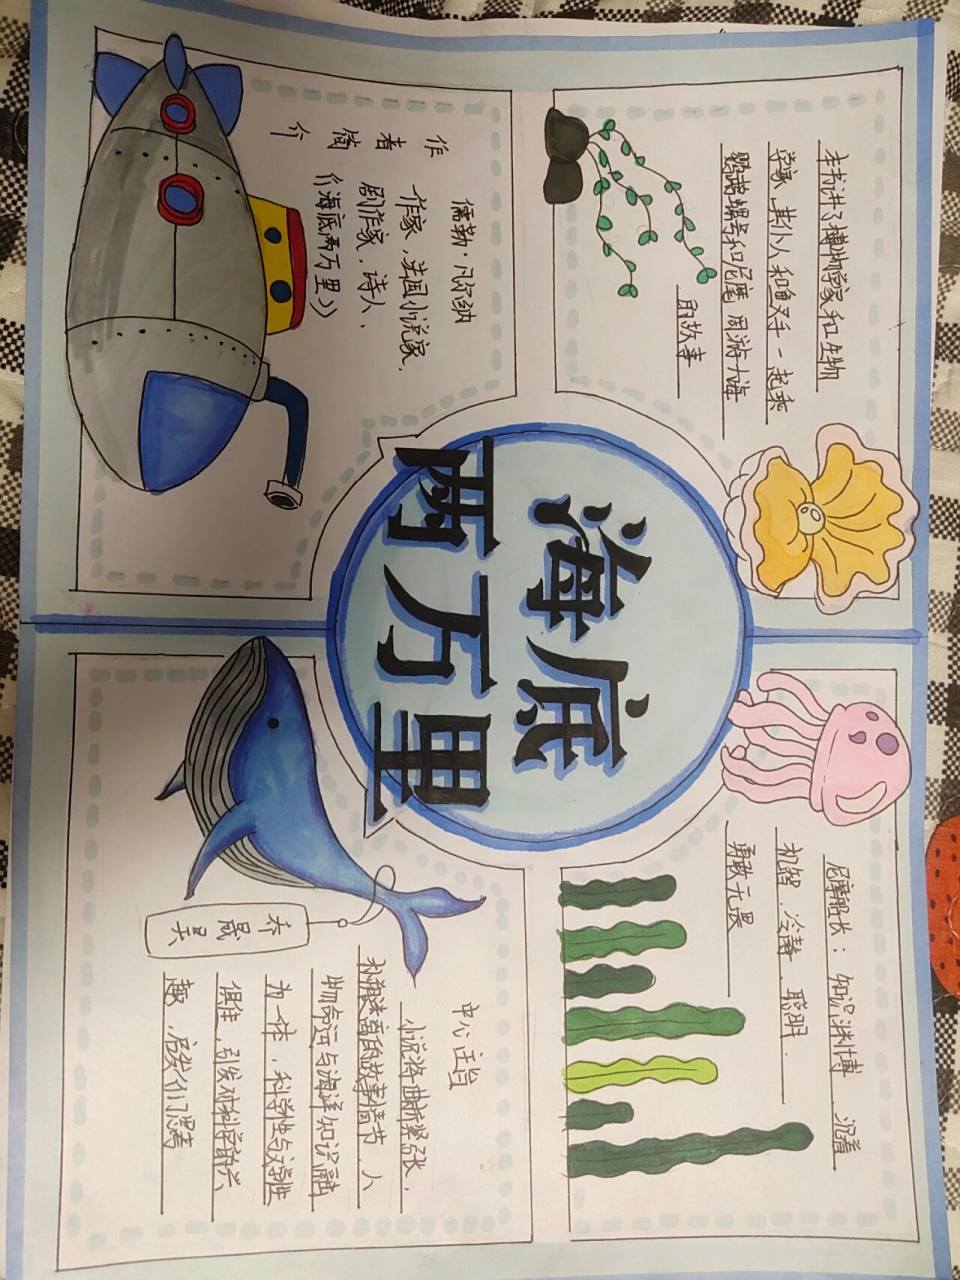 本书讲了博物学家和生物
学家、其仆人和鱼叉手一起乘
鹦鹉螺号和尼摩周游大海
的故事
尼摩船长：知识渊博 沉着
机智、冷静、聪明、
勇敢无畏
海底
两万里
作
者
简
介
儒勒·凡尔纳
作家、法国小说家、
剧作家、诗人、
《海底两万里》
中心主旨
小说将曲折紧张、
扑朔迷离的故事情节、人
物命运与海洋知识融
为一体，科学性与文学性
俱佳，引发对科学的兴
趣，启发人们思考
乔晟昊